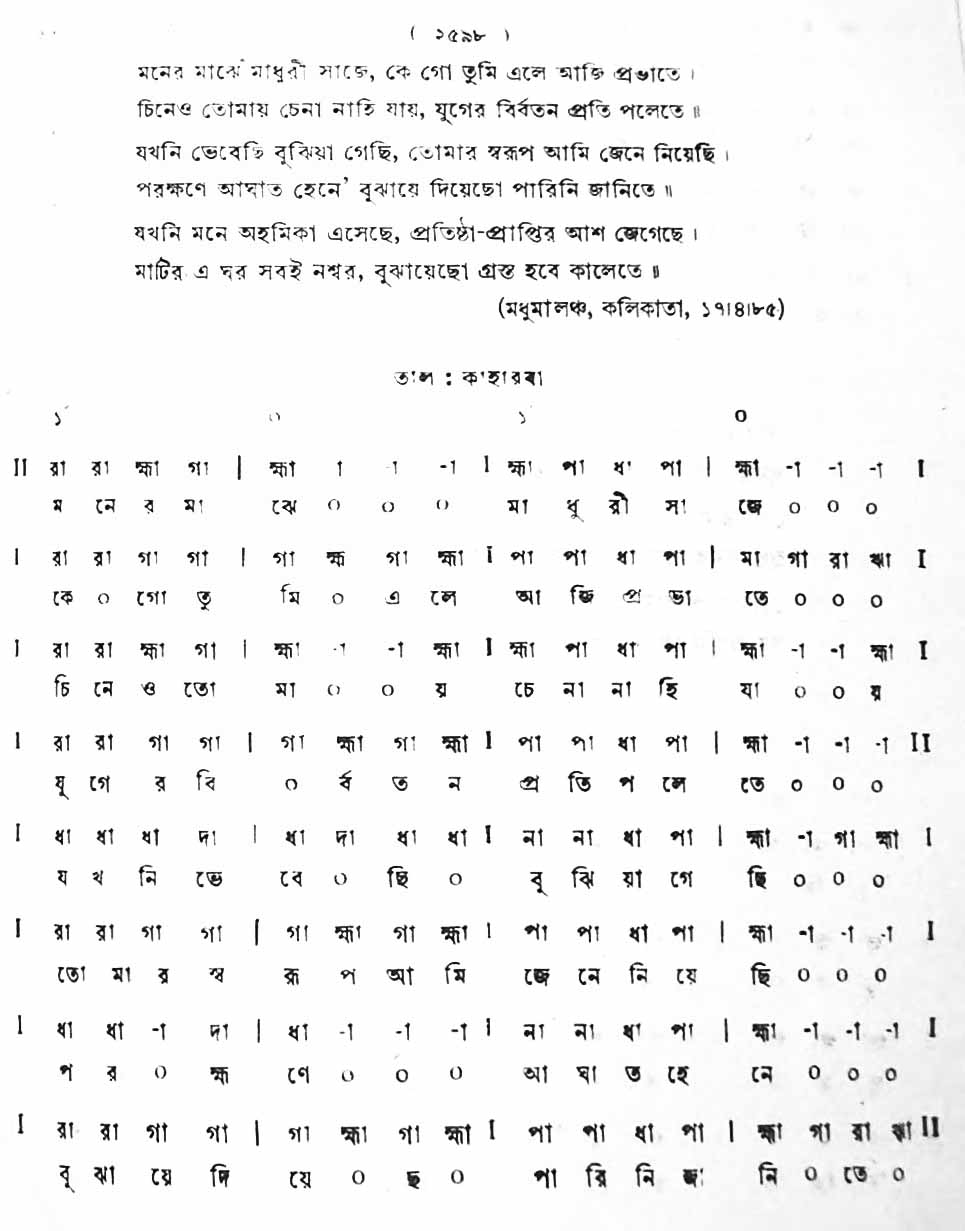 ( ২৫৯৮ )
মনের মাঝে মাধুরী সাজে, কে গো তুমি এলে আজি প্রভাতে ।
চিনেও তোমায় চেনা নাহি যায়, যুগের বির্বতন প্রতি পলেতে ॥
যখনি ভেবেছি বুঝিয়া গেছি, তোমার স্বরূপ আমি জেনে নিয়েছি ।
পরক্ষণে আঘাত হেনে' বুঝায়ে দিয়েছো পারিনি জানিতে ॥
যখনি মনে অহমিকা এসেছে, প্রতিষ্ঠা-প্রাপ্তির আশ জেগেছে ।
মাটির এ ঘর সবই নশ্বর, বুঝায়েছো গ্রস্ত হবে কালেতে ॥
(মধুমালঞ্চ, কলিকাতা, ১৭।৪।৮৫)
তাল : কাহারবা
১´ ০ ১´ ০
II রা রা হ্মা গা | হ্মা া -া -া I হ্মা পা ধা পা | হ্মা -া -া -া I
ম নে র মা ঝে ০ ০ ০ মা ধু রী সা জে ০ ০ ০
I রা রা গা গা | গা হ্ম গা হ্মা I পা পা ধা পা | মা গা রা ঋা I
কে ০ গো তু মি ০ এ লে আ জি প্র ভা তে ০ ০ ০
I রা রা হ্মা গা | হ্মা -া -া হ্মা I হ্মা পা ধা পা | হ্মা -া -া হ্মা I
চি নে ও তো মা ০ ০ য় চে না না হি যা ০ ০ য়
I রা রা গা গা | গা হ্মা গা হ্মা I পা পা ধা পা | হ্মা -া -া -া II
যু গে র বি ০ র্ব ত ন প্র তি প লে তে ০ ০ ০
I ধা ধা ধা দা | ধা দা ধা ধা I না না ধা পা | হ্মা -া গা হ্মা I
য খ নি ভে বে ০ ছি ০ বু ঝি য়া গে ছি ০ ০ ০
I রা রা গা গা | গা হ্মা গা হ্মা I পা পা ধা পা | হ্মা -া -া -া I
তো মা র স্ব রূ প আ মি জে নে নি য়ে ছি ০ ০ ০
I ধা ধা -া দা | ধা -া -া -া I না না ধা পা | হ্মা -া -া -া I
প র ০ হ্ম ণে ০ ০ ০ আ ঘা ত হে নে ০ ০ ০
I রা রা গা গা | গা হ্মা গা হ্মা I পা পা ধা পা | হ্মা গা রা ঋা II
বু ঝা য়ে দি য়ে ০ ছ ০ পা রি নি জা নি ০ তে ০